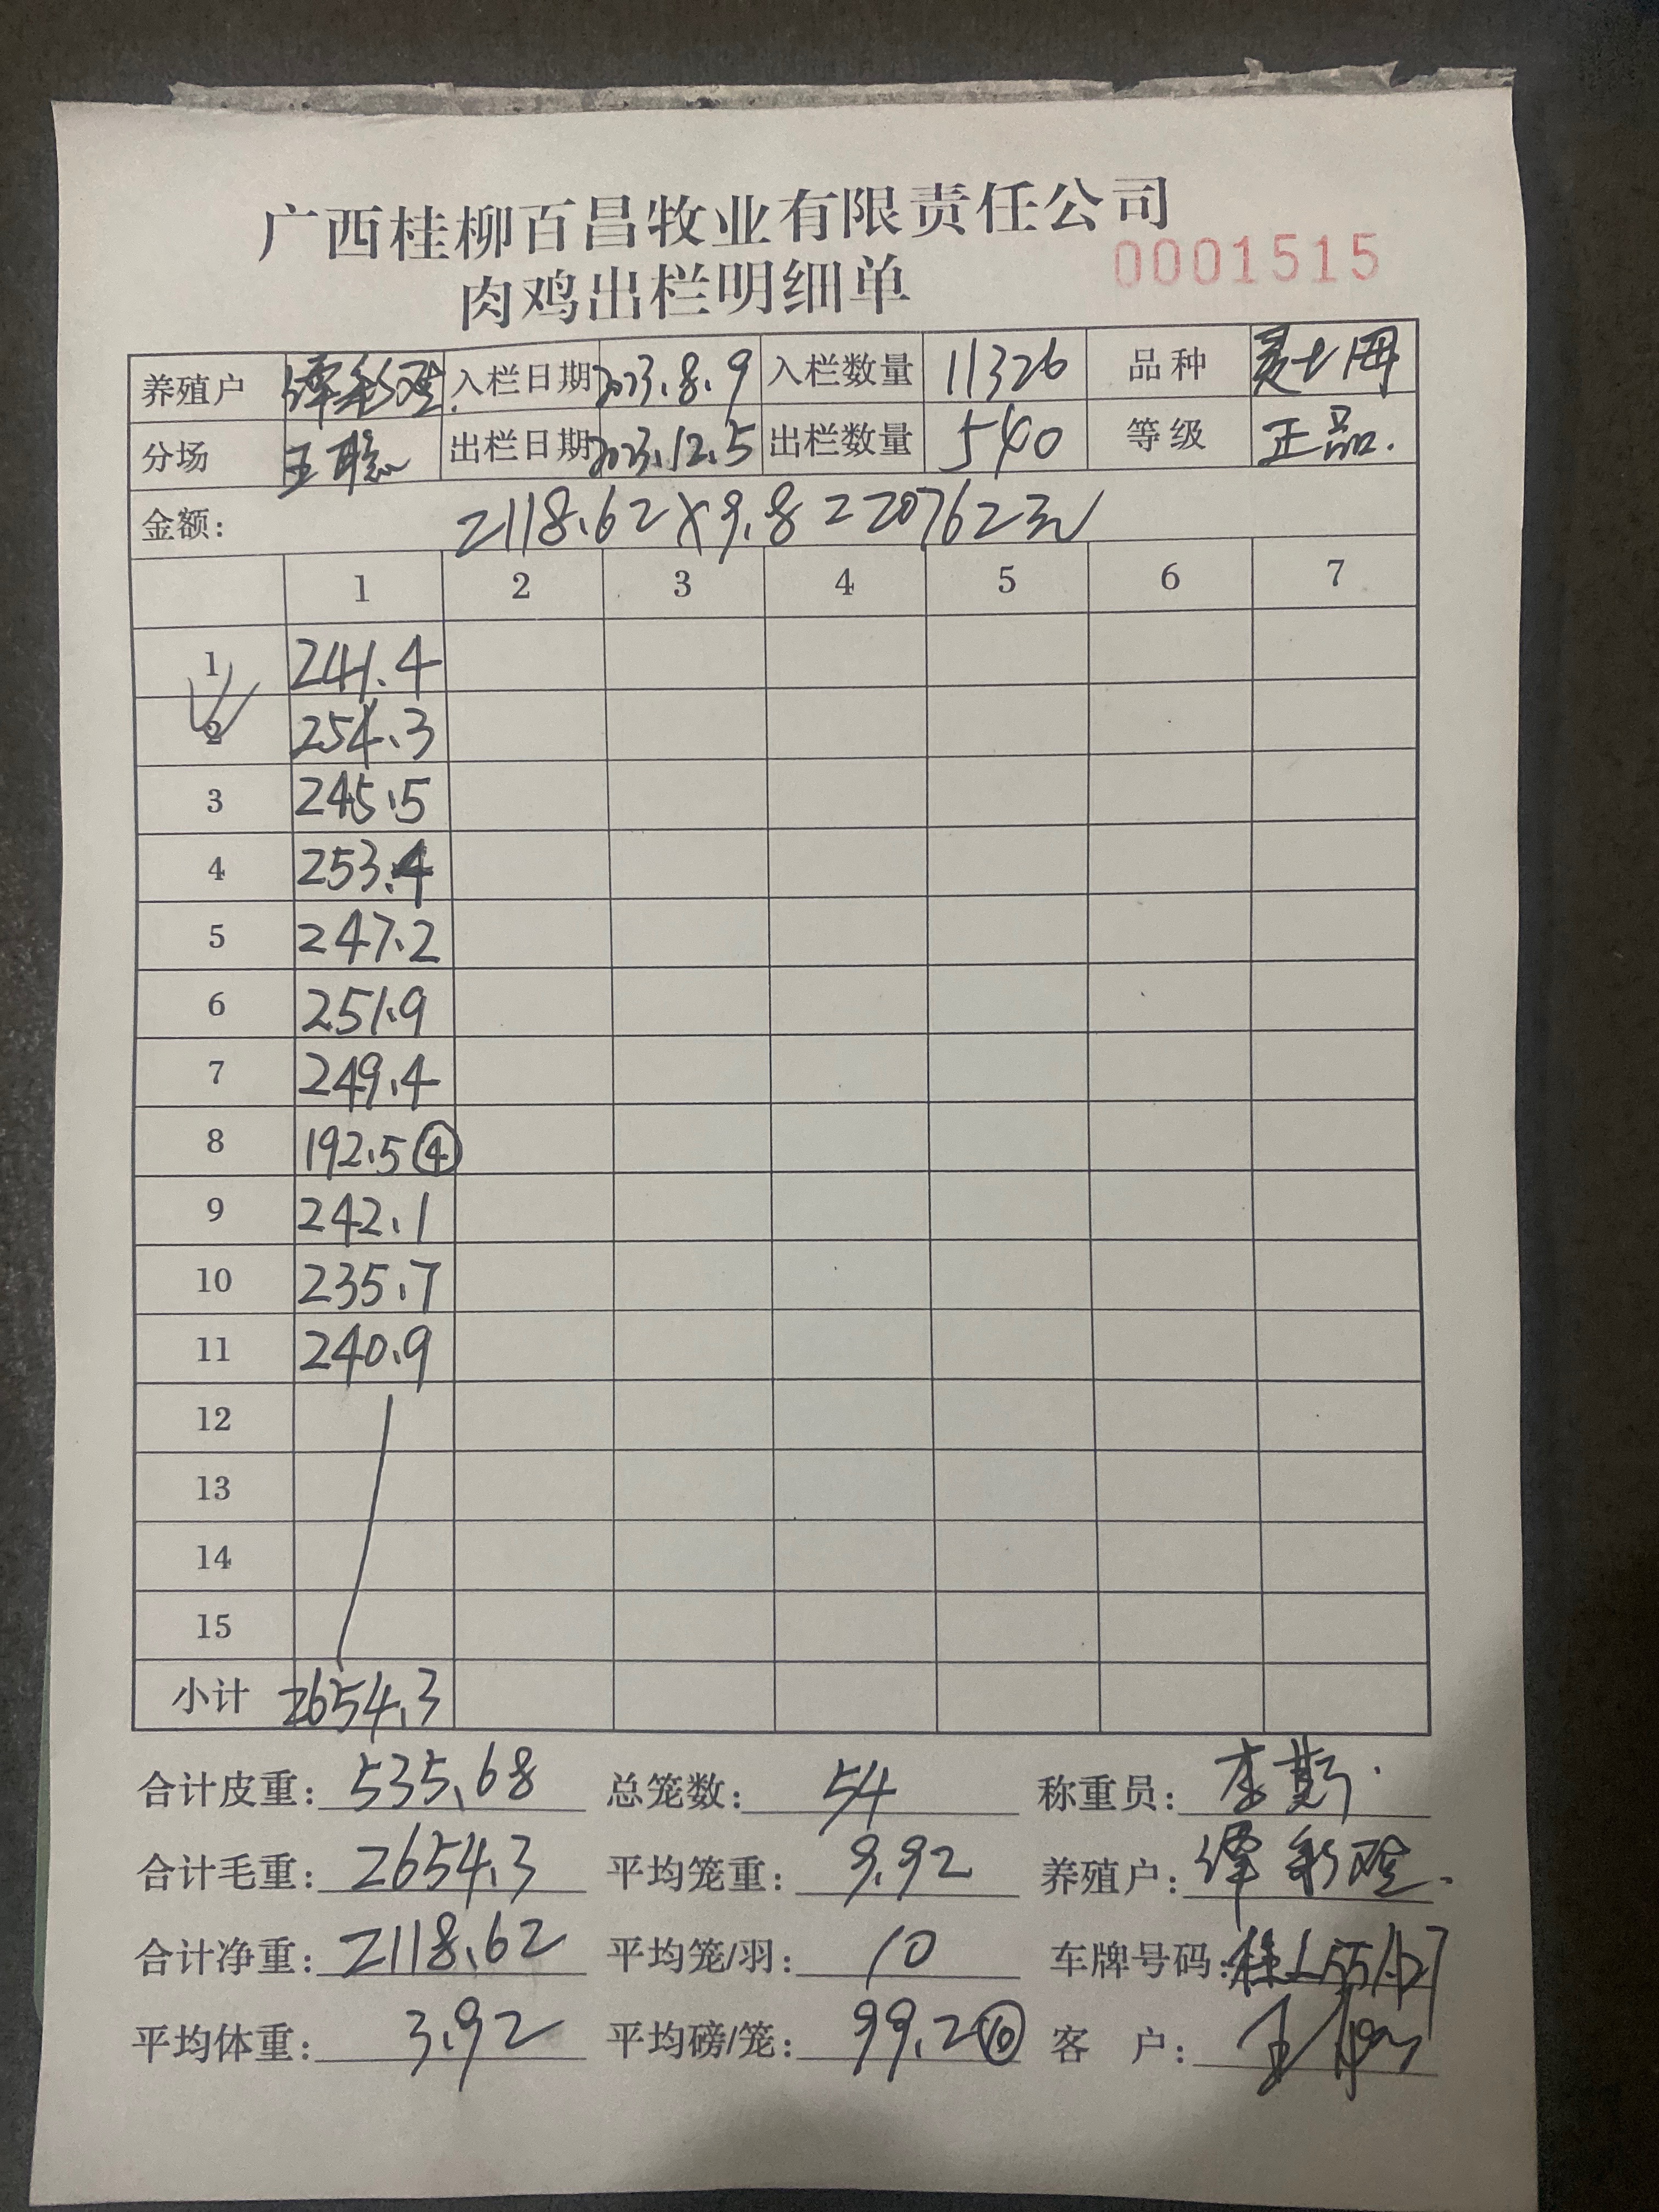 广西桂柳百昌牧业有限责任公司
肉鸡出栏明细单 0001515
养殖户 谭彩 入栏日期 2023.8.9 入栏数量 11326 品种
分场 王聪 出栏日期 2023.12.5 出栏数量 540 等级 正品.
金额: 2118.62×9.8=20762元
1 2 3 4 5 6 7
1 241.4
2 254.3
3 245.5
4 253.4
5 247.2
6 251.9
7 249.4
8 192.5④
9 242.1
10 235.7
11 240.9
12
13
14
15
小计 2654.3
合计皮重: 535.68 总笼数: 54 称重员: 李
合计毛重: 2654.3 平均笼重: 9.92 养殖户: 谭彩
合计净重: 2118.62 平均笼/羽: 10 车牌号码:
平均体重: 3.92 平均磅/笼: 99.2⑩ 客 户: 王